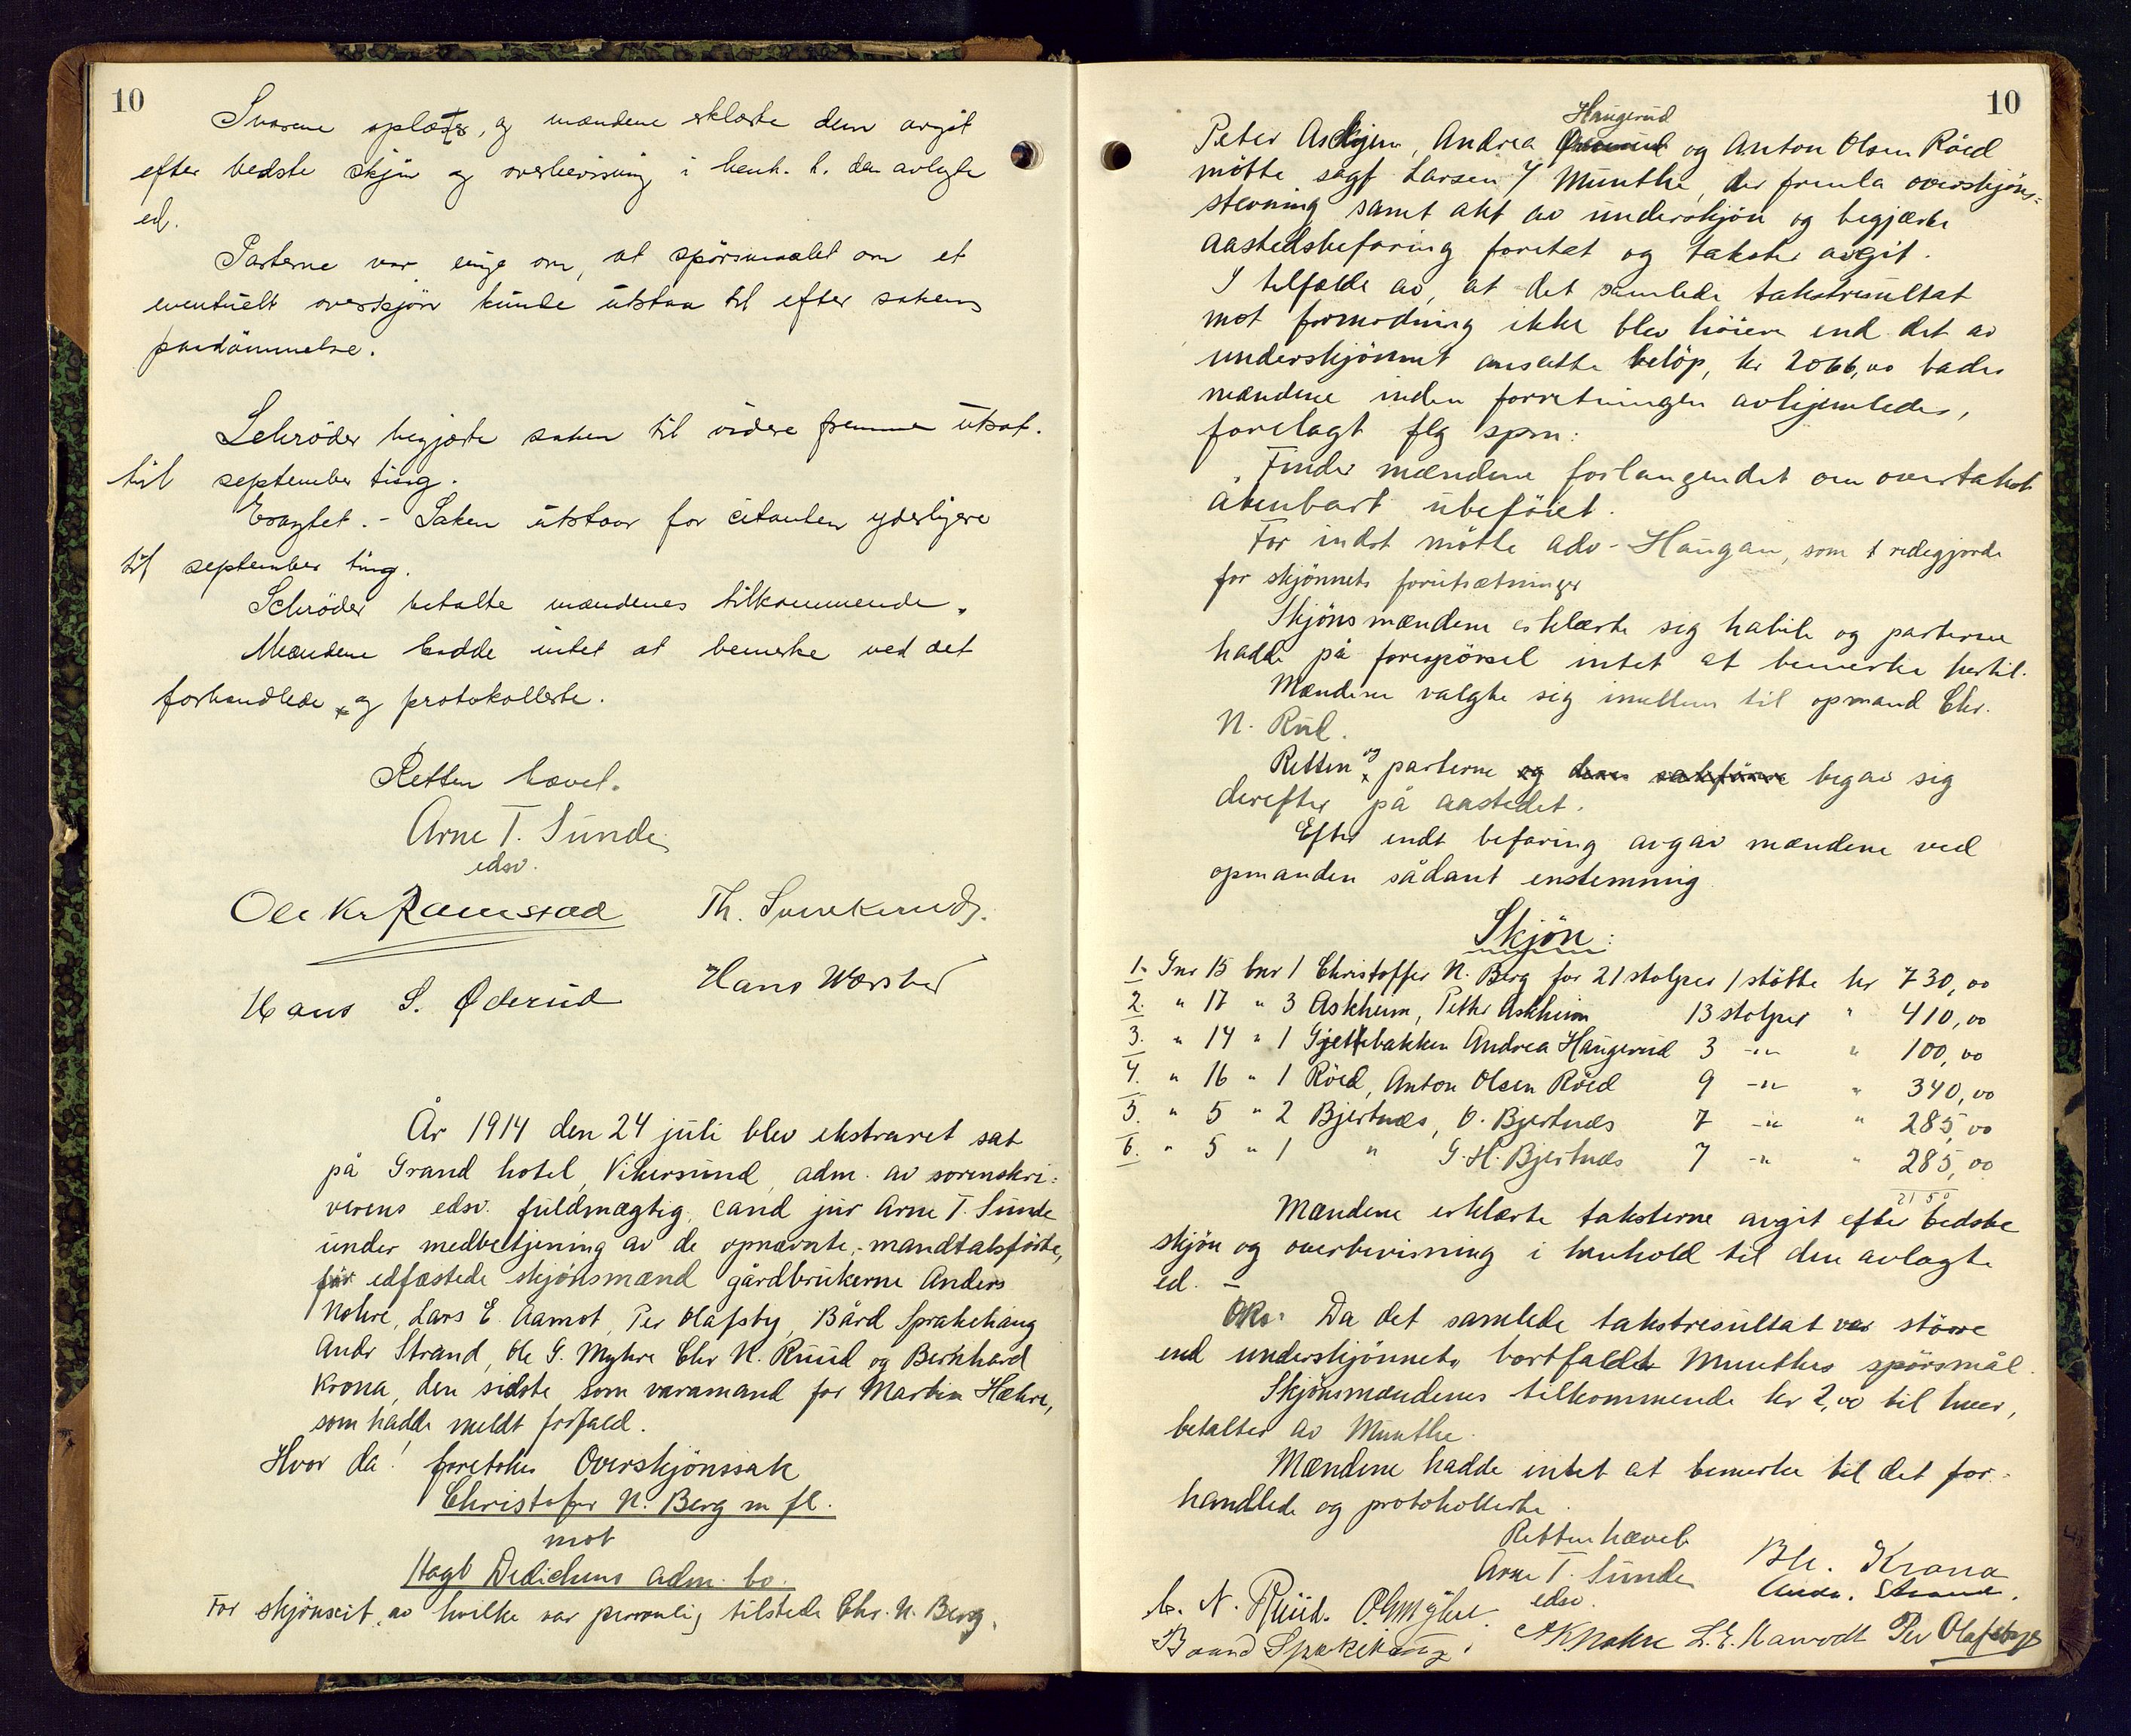 10
Svarene oplæstes, og mændene erklærte dem avgit
efter bedste skjøn og overbevisning i henh. t. den avlagte
ed.
Parterne var enige om, at spørsmaalet om et
eventuelt overskjøn kunde utstaa til efter sakens
paadømmelse.
Schrøder begjærte saken til videre fremme utsat
til september ting.
Eragtet. - Saken utstaar for citanten yderligere
til september ting.
Schrøder betalte mændenes tilkommende.
Mændene hadde intet at bemerke ved det
forhandlede og protokollerte.
Retten hævet.
Arne T. Sunde
edsv.
Ole Kr Ramstad Th. Svenkerud.
Hans S. Øderud Hans Wærsted
År 1914 den 24 juli blev ekstraret sat
på Grand hotel, Vikersund, adm. av sorenskri-
verens edsv. fuldmægtig, cand jur Arne T. Sunde
under medbetjening av de opnævnte, mandtalsførte,
før edfæstede skjønsmænd gårdbrukerne Anders
Nohre, Lars E. Aamot, Per Olafsby, Bård Sprakehaug
Andr Strand, Ole G. Myhre Chr N. Ruud og Bernhard
Krona, den sidste som varamand for Martin Hæhre,
som hadde meldt forfald.
Hvor da! foretokes Overskjønssak
Christofer N. Berg m fl.
mot
Hagb Dedichens adm. bo.
For skjønscit. av hvilke var personlig tilstede Chr. N. Berg,
10
Haugerud
Peter Askjem, Andrea og Anton Olsen Röed
møtte sagf Larsen f Munthe, der fremla overskjøns-
stevning samt akt av underskjøn og begjærte
aastedsbefaring foretat og takster avgit.
I tilfælde av, at det samlede takstresultat
mot formodning ikke blev høiere end det av
underskjønnet ansatte beløp, kr 2066,00 bades
mændene inden forretningen avhjemledes,
forelagt flg spm:
Finder mændene forlangendet om overtakst
åbenbart ubeføiet.
For indst møtte adv. Haugan, som redegjorde
for skjønnets forutsætninger
Skjønsmændene erklærte sig habile og parterne
hadde på forespørsel intet at bemerke hertil.
Mændene valgte sig imellem til opmand Chr.
N. Rud.
Retten og parterne og deres sakførere begav sig
derefter på aastedet.
Efter endt befaring avgav mændene ved
opmanden sådant enstemmig
Skjön:
1. Gnr 15 bnr 1 Christoffer N. Berg for 21 stolper 1 støtte kr 730,00
2. " 17 " 3 Askheim, Petter Askheim 13 stolper " 410,00
3. " 14 " 1 Gjettebakken Andrea Haugerud 3 -"- " 100,00
4. " 16 " 1 Röed, Anton Olsen Röed 9 -"- " 340,00
5. " 5 " 2 Bjertnæs, O. Bjertnæs 7 -"- " 285,00
6. " 5 " 1 " G. H. Bjertnæs 7 -"- " 285,00
2150
Mændene erklærte taksterne avgit efter bedste
skjøn og overbevisning i henhold til den avlagte
ed.
Da det samlede takstresultat var større
end underskjønnets bortfaldt Munthes spørsmål.
Skjønsmændenes tilkommende kr 2,00 til hver,
betaltes av Munthe.
Mændene hadde intet at bemerke til det for-
handlede og protokollerte.
Retten hævet
Arne T. Sunde Bh. Krona
edsv. Andr. Strand.
C. N. Ruud. O. G. Myhre
Baard Sprakehaug. A K Nohre L. E. Aamodt Per Olafsby